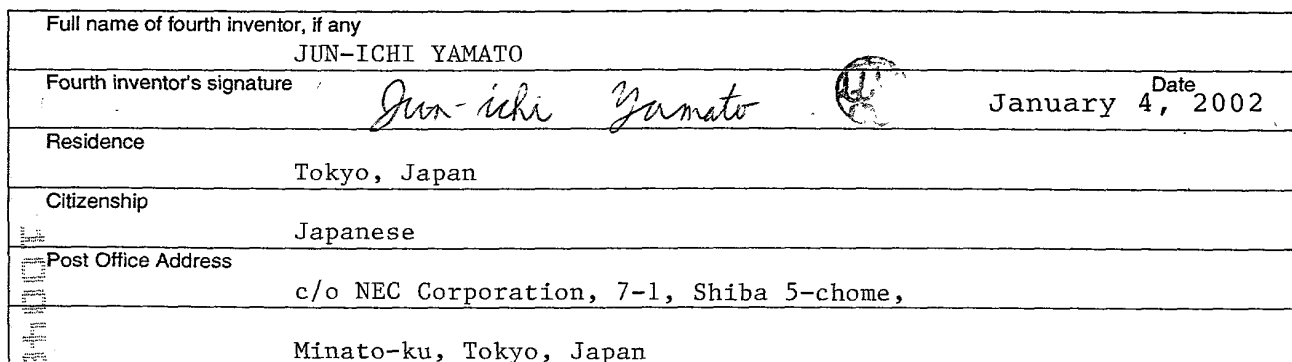 Full name of fourth inventor, if any
JUN-ICHI YAMATO
Fourth inventor's signature
Jun-ichi Yamato
Date
January 4, 2002
Residence
Tokyo, Japan
Citizenship
Japanese
Post Office Address
c/o NEC Corporation, 7-1, Shiba 5-chome,
Minato-ku, Tokyo, Japan